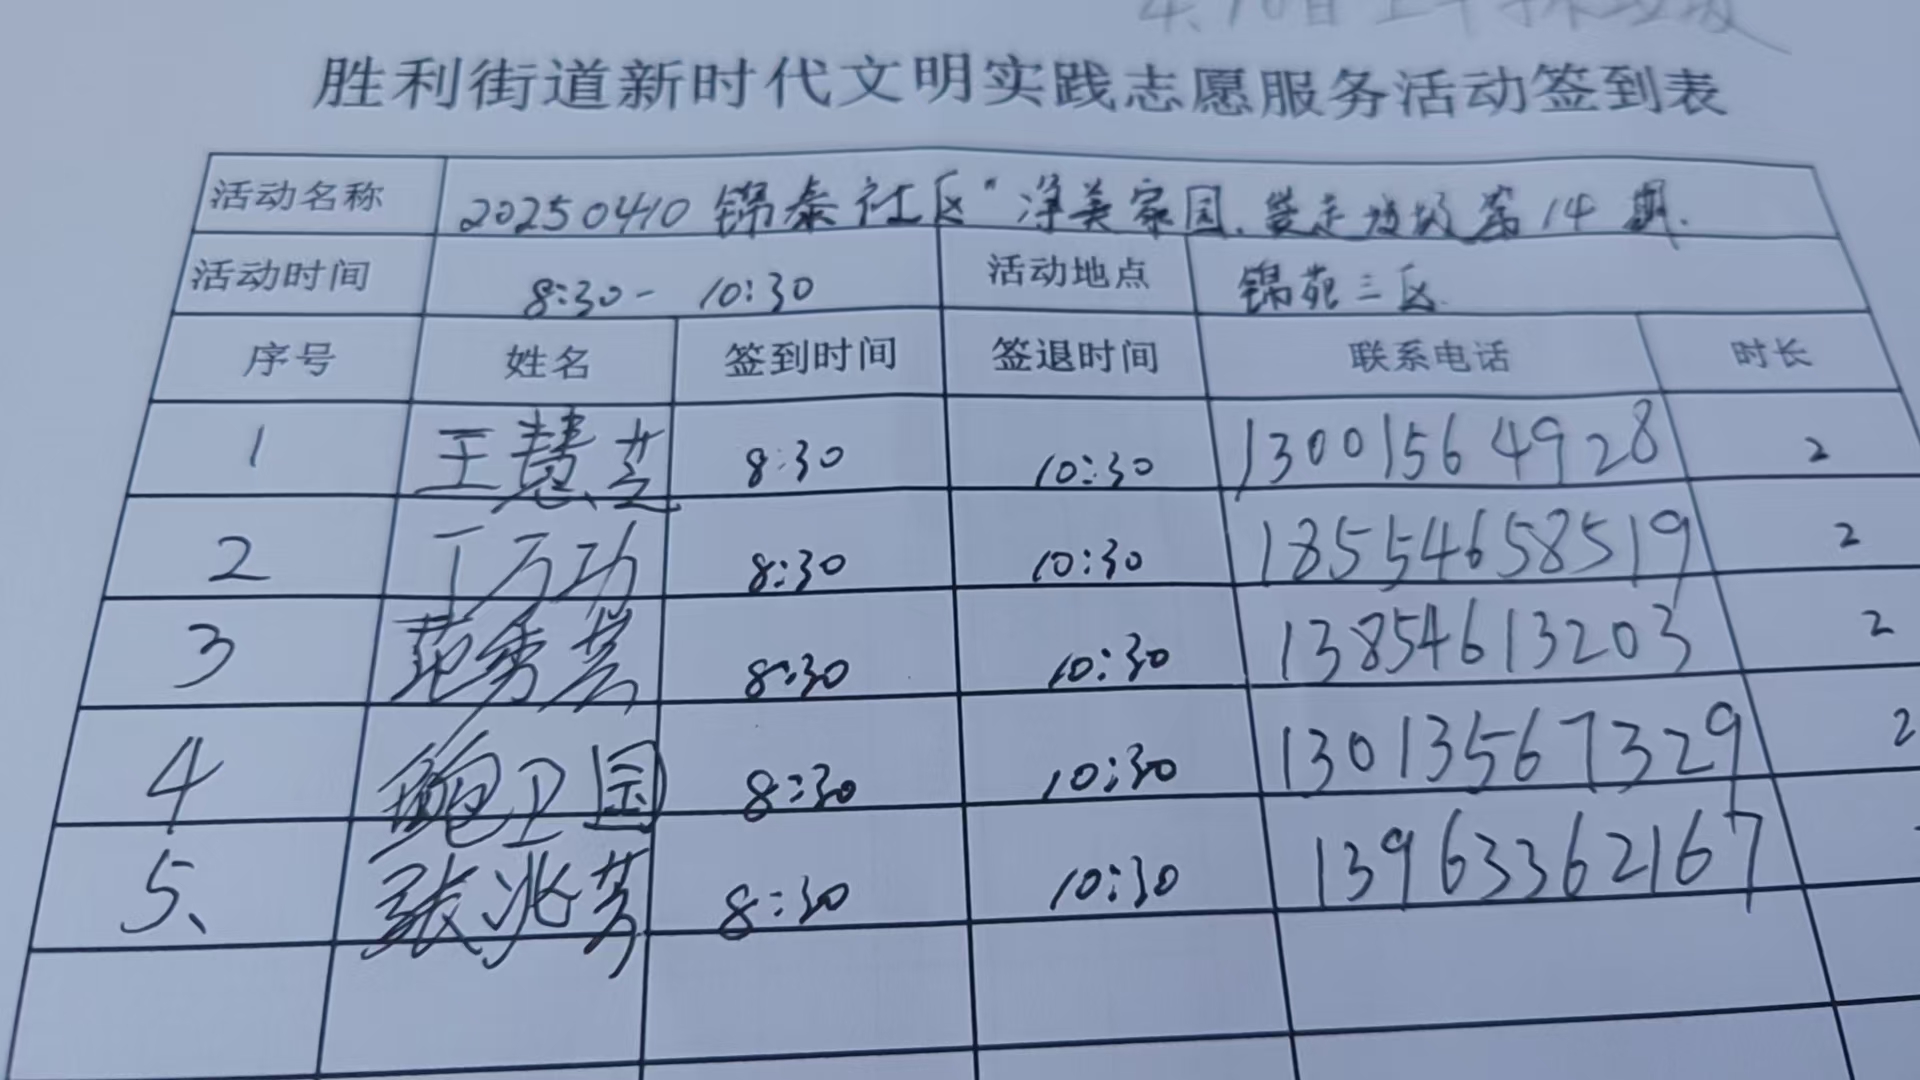 胜利街道新时代文明实践志愿服务活动签到表
活动名称 20250410 锦泰社区"净美家园、捡走垃圾第14期.
活动时间 8:30- 10:30 活动地点 锦苑三区.
序号 姓名 签到时间 签退时间 联系电话 时长
1 王慧芝 8:30 10:30 13001564928 2
2 丁万功 8:30 10:30 18554658519 2
3 范秀芸 8:30 10:30 13854613203 2
4 鲍卫国 8:30 10:30 13013567329 2
5、 张兆芳 8:30 10:30 13963362167